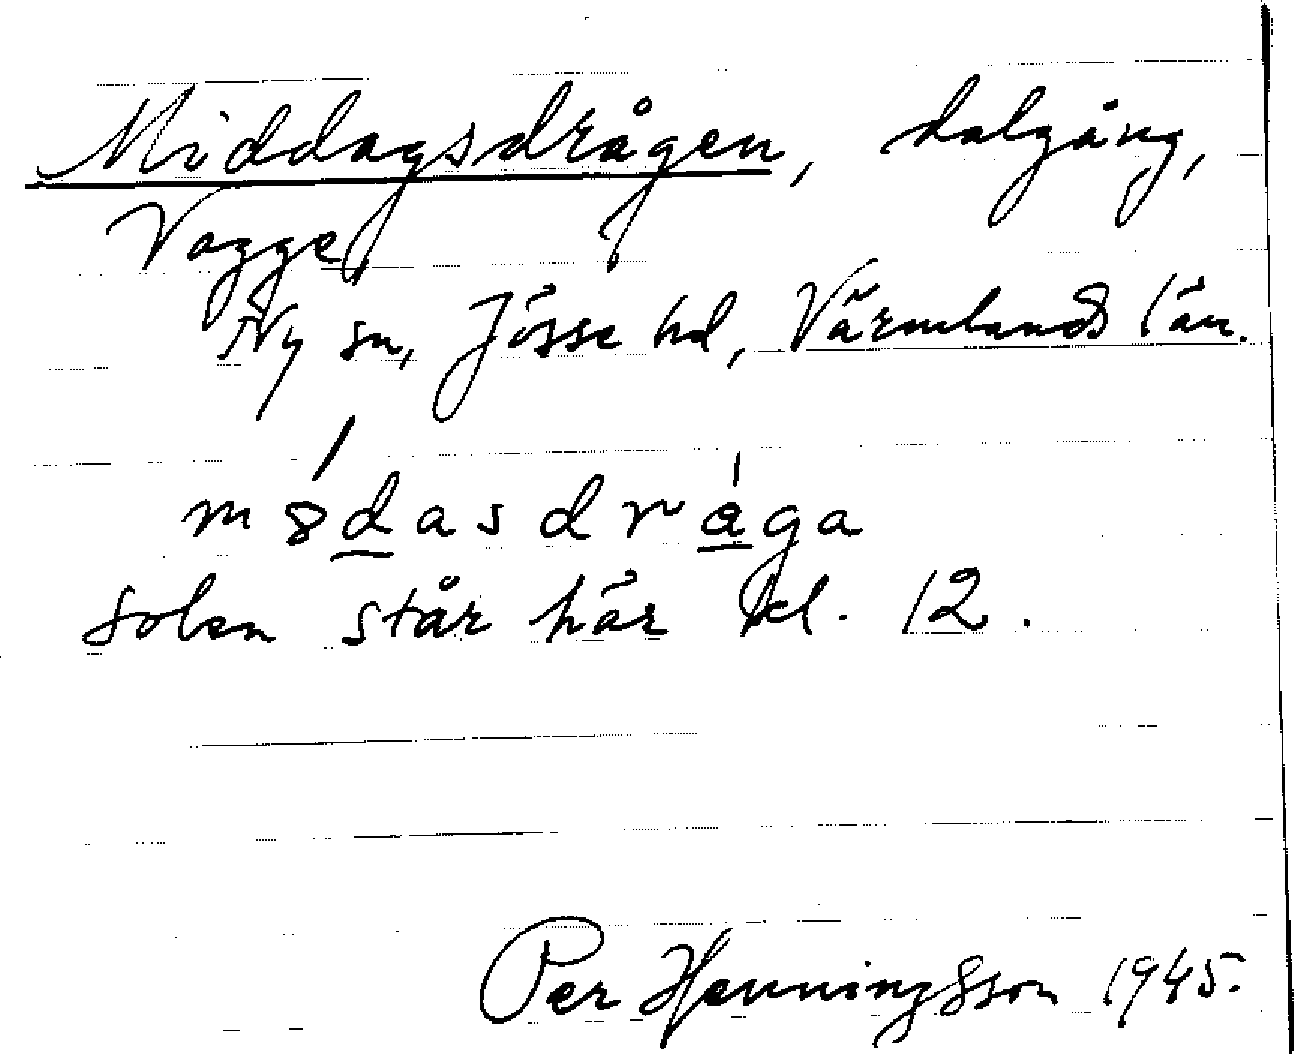 Middagsdrågen, dalgång,
Vagge
Ny sn, Jösse hd, Värmlands län.
m 8 d a s d r å g a
solen står här kl. 12.
Per Henningsson 1945.